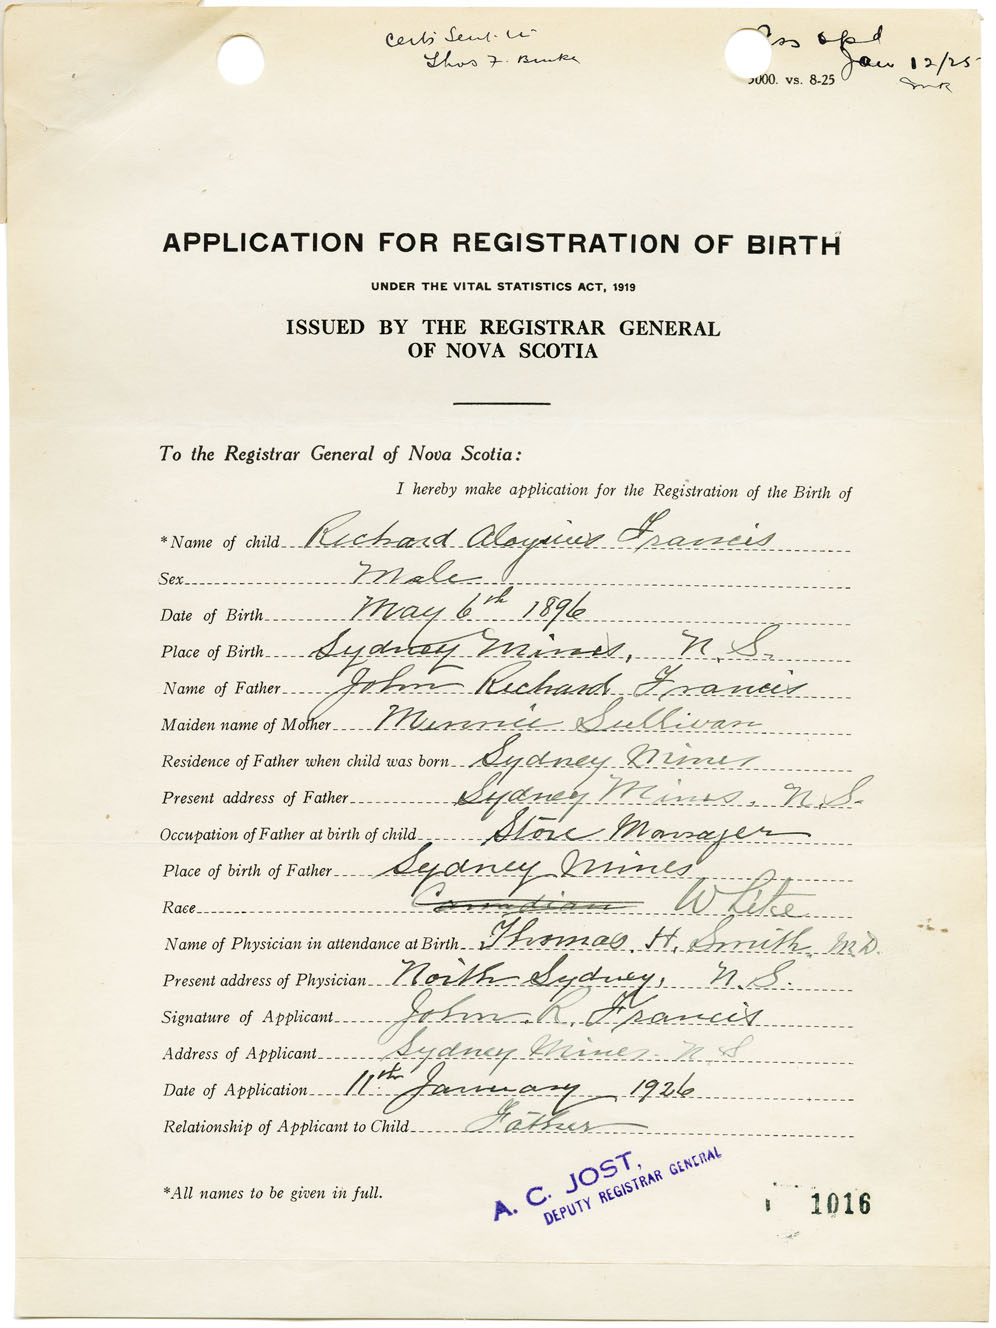 Certs Sent to
Thos F. Burke
Ass opd
Jan 12/25
5000. vs. 8-25
APPLICATION FOR REGISTRATION OF BIRTH
UNDER THE VITAL STATISTICS ACT, 1919
ISSUED BY THE REGISTRAR GENERAL
OF NOVA SCOTIA
To the Registrar General of Nova Scotia:
I hereby make application for the Registration of the Birth of
*Name of child Richard Aloysius Francis
Sex Male
Date of Birth May 6th 1896
Place of Birth Sydney Mines, N.S.
Name of Father John Richard Francis
Maiden name of Mother Minnie Sullivan
Residence of Father when child was born Sydney Mines
Present address of Father Sydney Mines, N.S.
Occupation of Father at birth of child Store Manager
Place of birth of Father Sydney Mines
Race Canadian White
Name of Physician in attendance at Birth Thomas H. Smith M.D.
Present address of Physician North Sydney, N.S.
Signature of Applicant John R. Francis
Address of Applicant Sydney Mines N S
Date of Application 11th January 1926
Relationship of Applicant to Child Father
*All names to be given in full.
A. C. JOST,
DEPUTY REGISTRAR GENERAL
1016